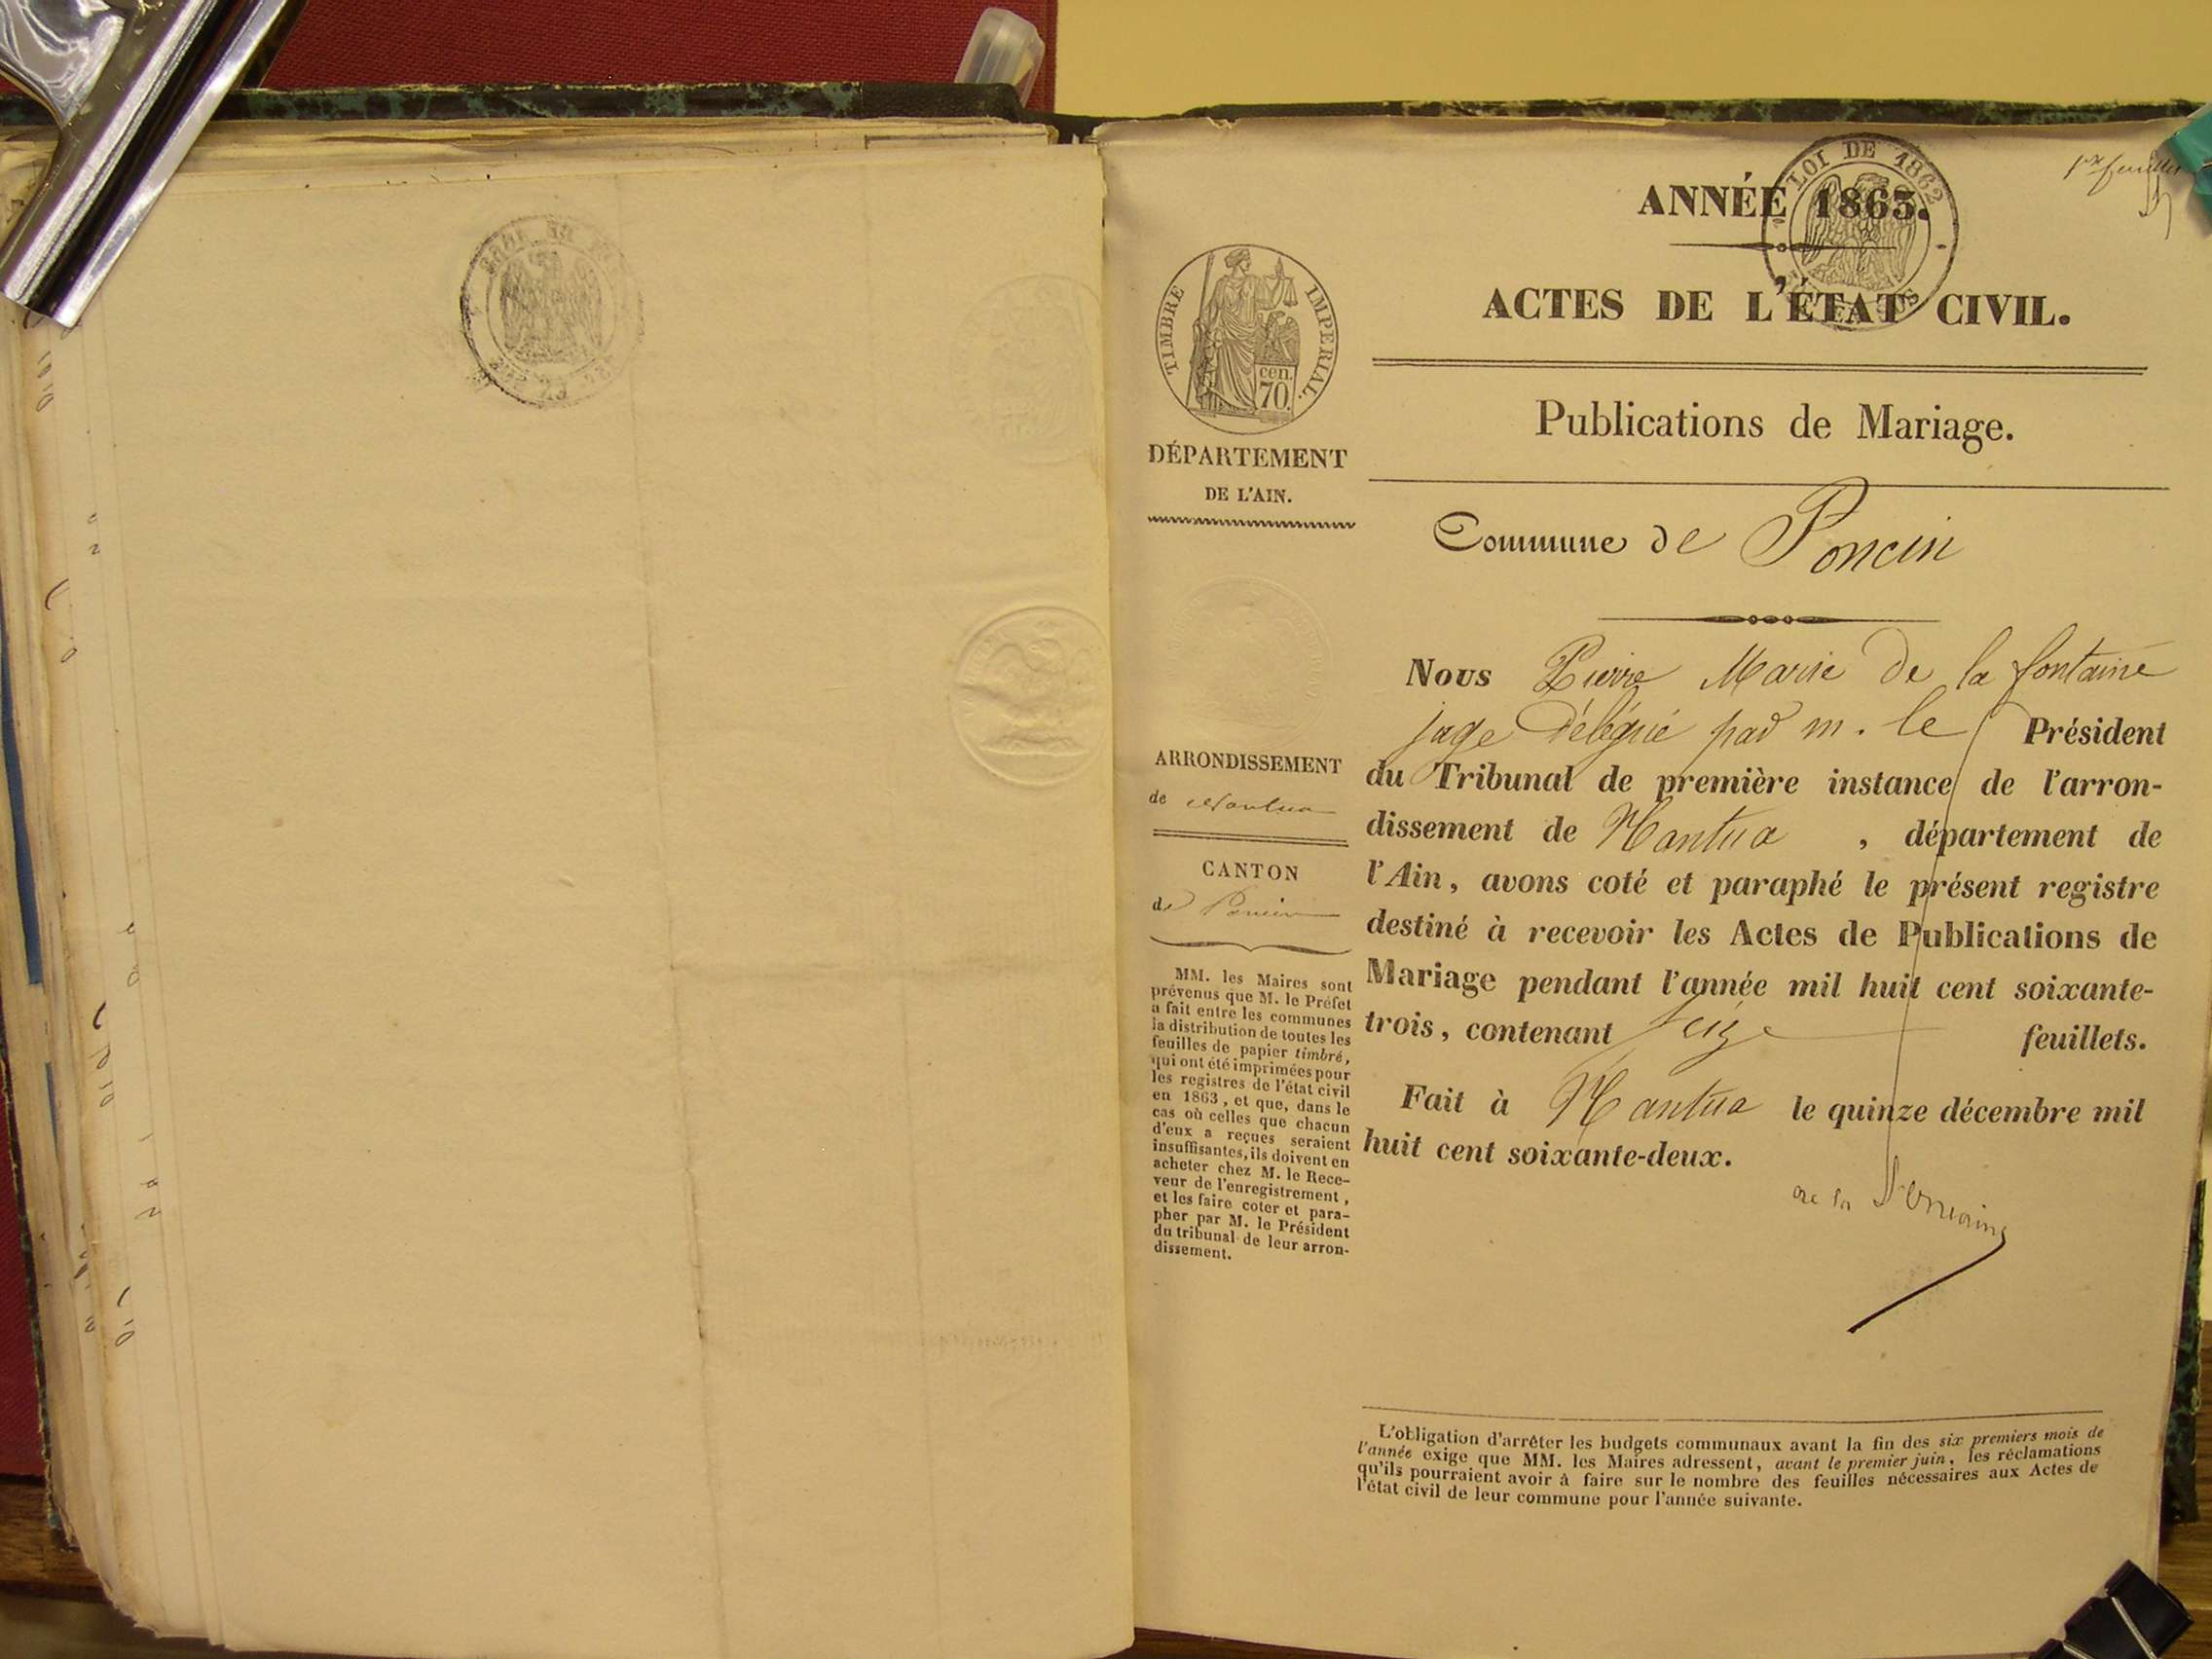 1er feuillet
LOI DE 1862
ANNÉE 1863.
ACTES DE L'ÉTAT CIVIL.
Publications de Mariage.
TIMBRE IMPERIAL.
cen.
70.
DÉPARTEMENT
DE L'AIN.
Commune de Poncin
Nous Pierre Marie De la fontaine
juge Délégué par m. le Président
du Tribunal de première instance de l'arron-
dissement de Nantua , département de
l'Ain, avons coté et paraphé le présent registre
destiné à recevoir les Actes de Publications de
Mariage pendant l'année mil huit cent soixante-
trois, contenant seize feuillets.
Fait à Nantua le quinze décembre mil
huit cent soixante-deux.
ARRONDISSEMENT
de Nantua
CANTON
de Poncin
MM. les Maires sont
prévenus que M. le Préfet
a fait entre les communes
la distribution de toutes les
feuilles de papier timbré,
qui ont été imprimées pour
les registres de l'état civil
en 1863, et que, dans le
cas où celles que chacun
d'eux a reçues seraient
insuffisantes, ils doivent en
acheter chez M. le Rece-
veur de l'enregistrement,
et les faire coter et para-
pher par M. le Président
du tribunal de leur arron-
dissement.
L'obligation d'arrêter les budgets communaux avant la fin des six premiers mois de
l'année exige que MM. les Maires adressent, avant le premier juin, les réclamations
qu'ils pourraient avoir à faire sur le nombre des feuilles nécessaires aux Actes de
l'état civil de leur commune pour l'année suivante.